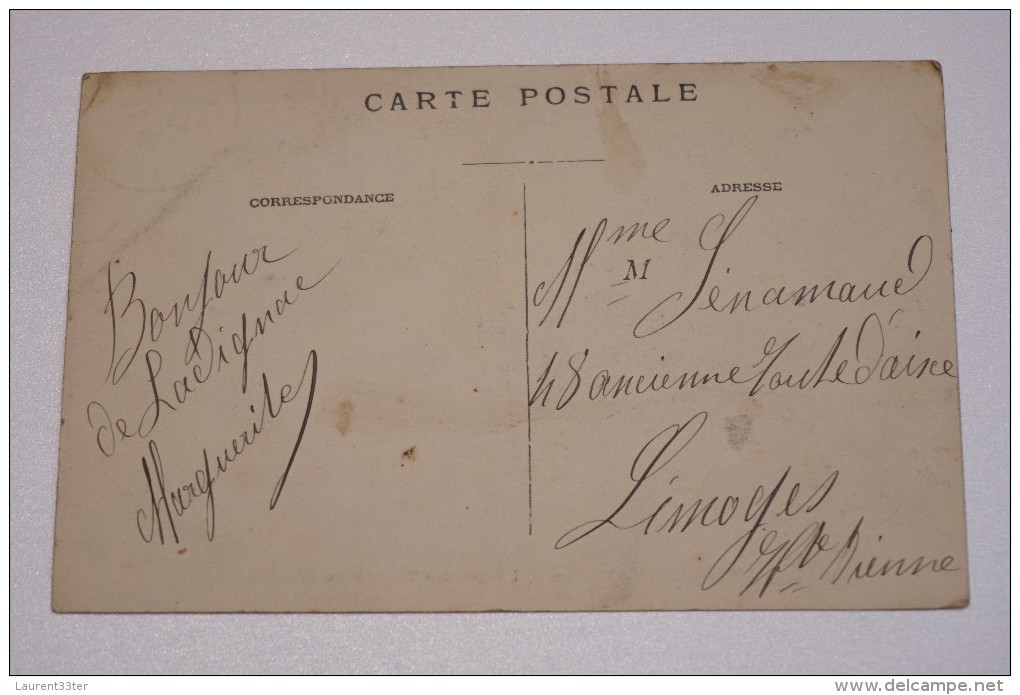 CARTE POSTALE
CORRESPONDANCE
Bonjour
de Ladignac
Marguerite
ADRESSE
Mme Sénamaud
M
48 ancienne route d'aixe
Limoges
Hte Vienne
Laurent33ter
www.delcampe.net